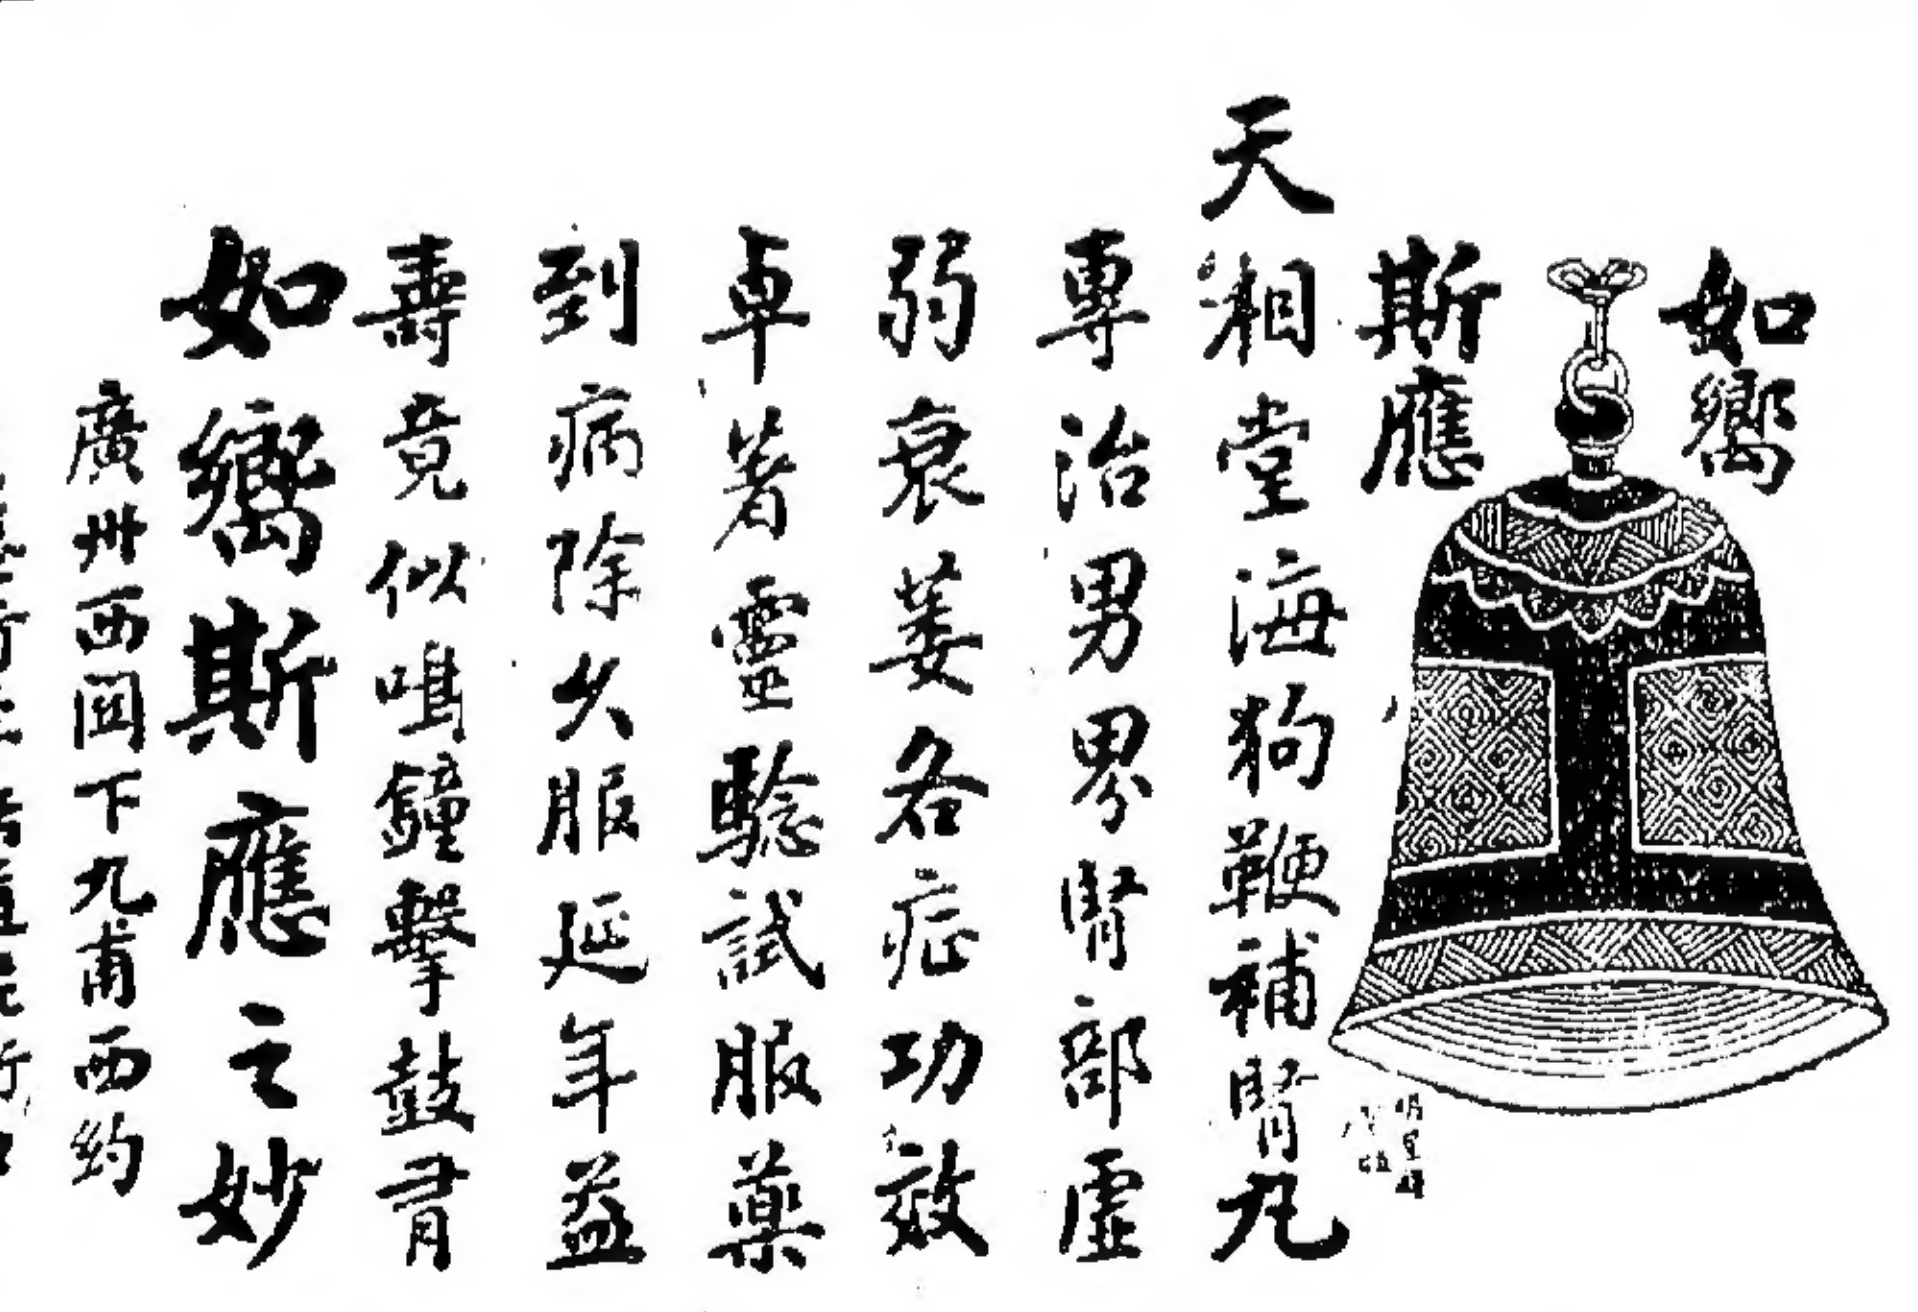 如嚮
斯應
天相堂海狗鞭補腎丸
專治男界腎部虛
弱衰萎各症功效
卓著靈驗試服藥
到病除久服延年益
壽竟似鳴鐘擊鼓有
如嚮斯應之妙
廣州西關下九甫西約